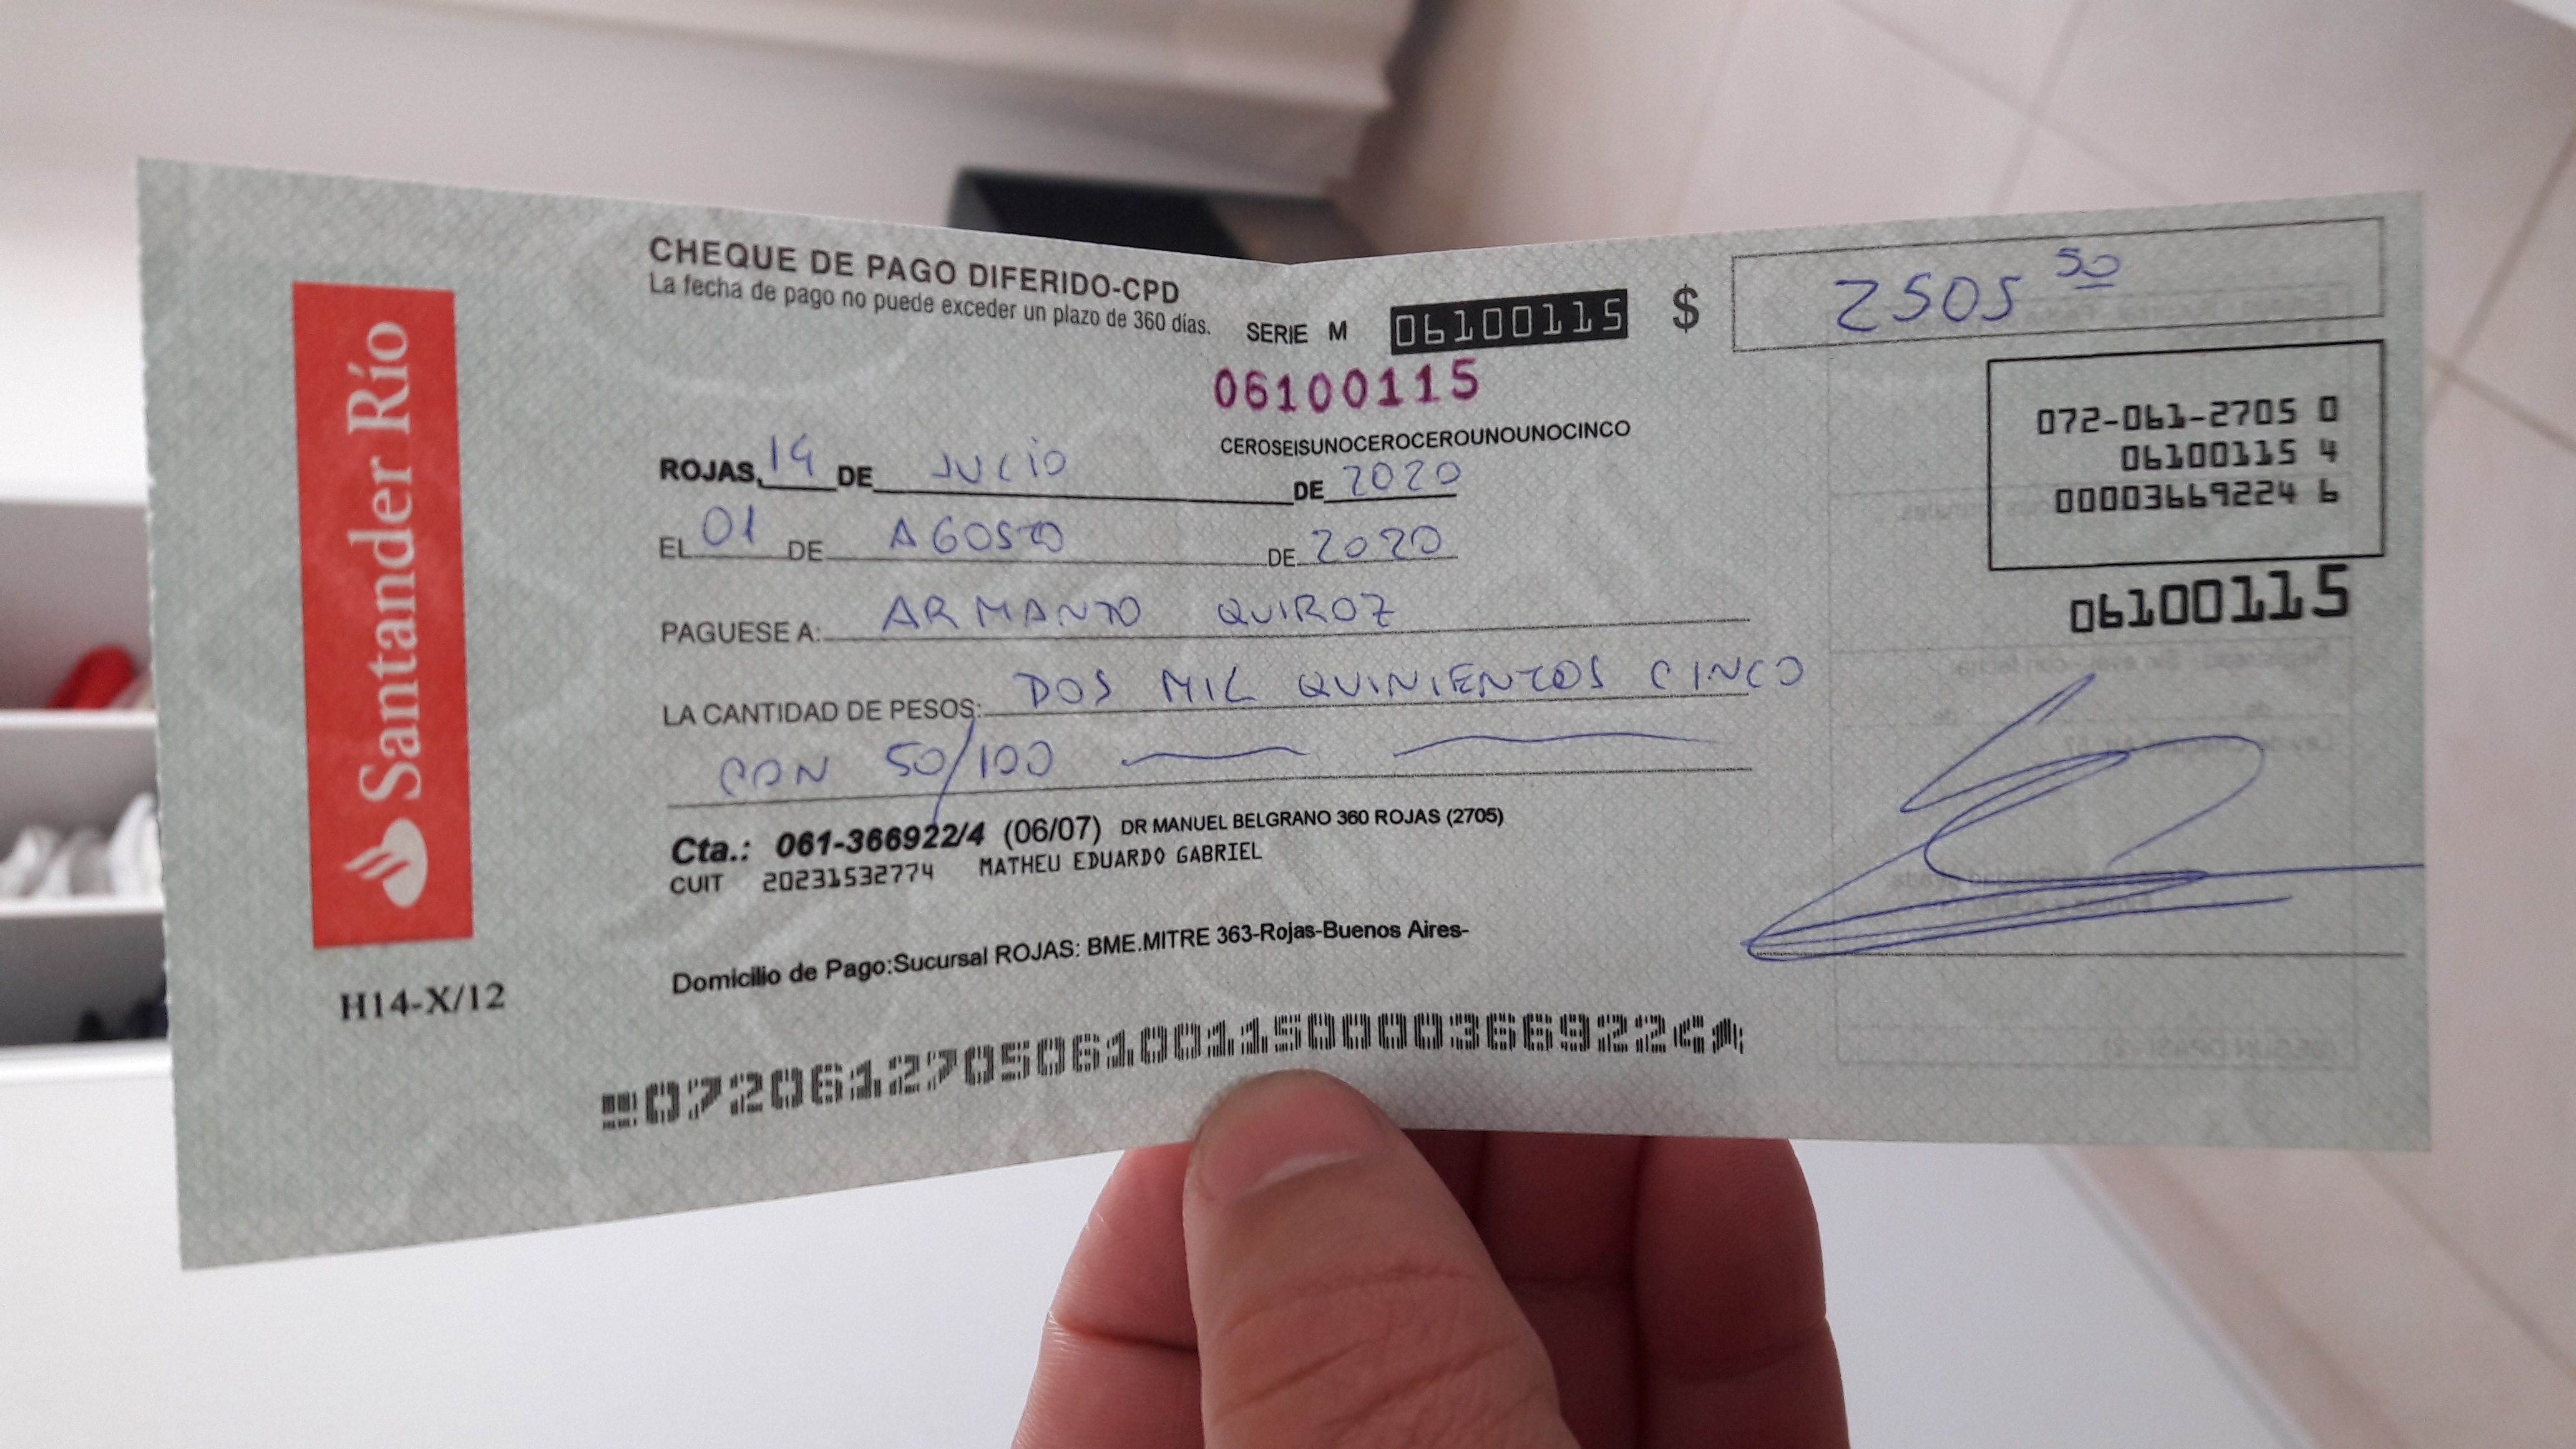 Santander Río
H14-X/12
CHEQUE DE PAGO DIFERIDO-CPD
La fecha de pago no puede exceder un plazo de 360 días.
SERIE M 06100115 $ 2505 50
06100115
CEROSEISUNOCEROCEROUNOUNOCINCO
072-061-2705 0
06100115 4
00003669224 6
06100115
ROJAS, 14 DE JULIO DE 2020
EL 01 DE AGOSTO DE 2020
PAGUESE A: ARMANDO QUIROZ
LA CANTIDAD DE PESOS: DOS MIL QUINIENTOS CINCO
CON 50/100
Cta.: 061-366922/4 (06/07) DR MANUEL BELGRANO 360 ROJAS (2705)
CUIT 20231532774 MATHEU EDUARDO GABRIEL
Domicilio de Pago:Sucursal ROJAS: BME.MITRE 363-Rojas-Buenos Aires-
07206127050610011500003669224